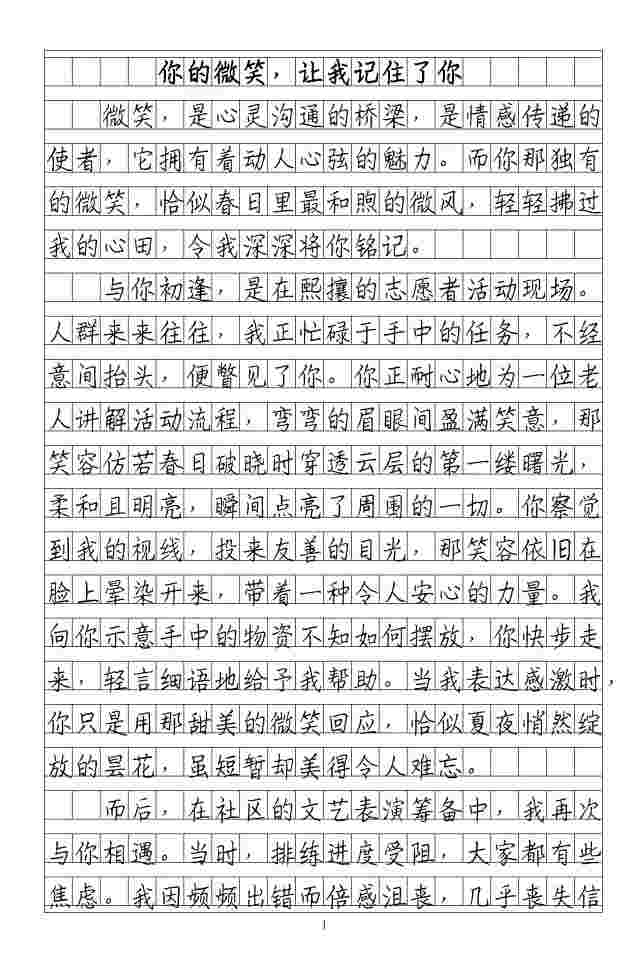 你的微笑，让我记住了你
微笑，是心灵沟通的桥梁，是情感传递的
使者，它拥有着动人心弦的魅力。而你那独有
的微笑，恰似春日里最和煦的微风，轻轻拂过
我的心田，令我深深将你铭记。
与你初逢，是在熙攘的志愿者活动现场。
人群来来往往，我正忙碌于手中的任务，不经
意间抬头，便瞥见了你。你正耐心地为一位老
人讲解活动流程，弯弯的眉眼间盈满笑意，那
笑容仿若春日破晓时穿透云层的第一缕曙光，
柔和且明亮，瞬间点亮了周围的一切。你察觉
到我的视线，投来友善的目光，那笑容依旧在
脸上晕染开来，带着一种令人安心的力量。我
向你示意手中的物资不知如何摆放，你快步走
来，轻言细语地给予我帮助。当我表达感激时，
你只是用那甜美的微笑回应，恰似夏夜悄然绽
放的昙花，虽短暂却美得令人难忘。
而后，在社区的文艺表演筹备中，我再次
与你相遇。当时，排练进度受阻，大家都有些
焦虑。我因频频出错而倍感沮丧，几乎丧失信
1